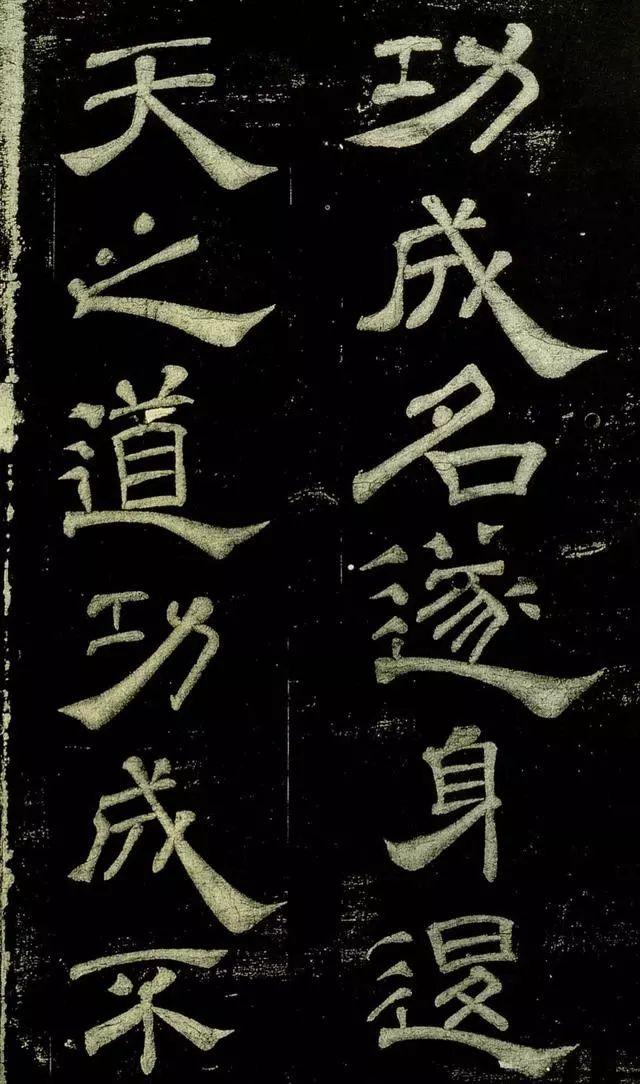 功成名遂身退
天之道功成不